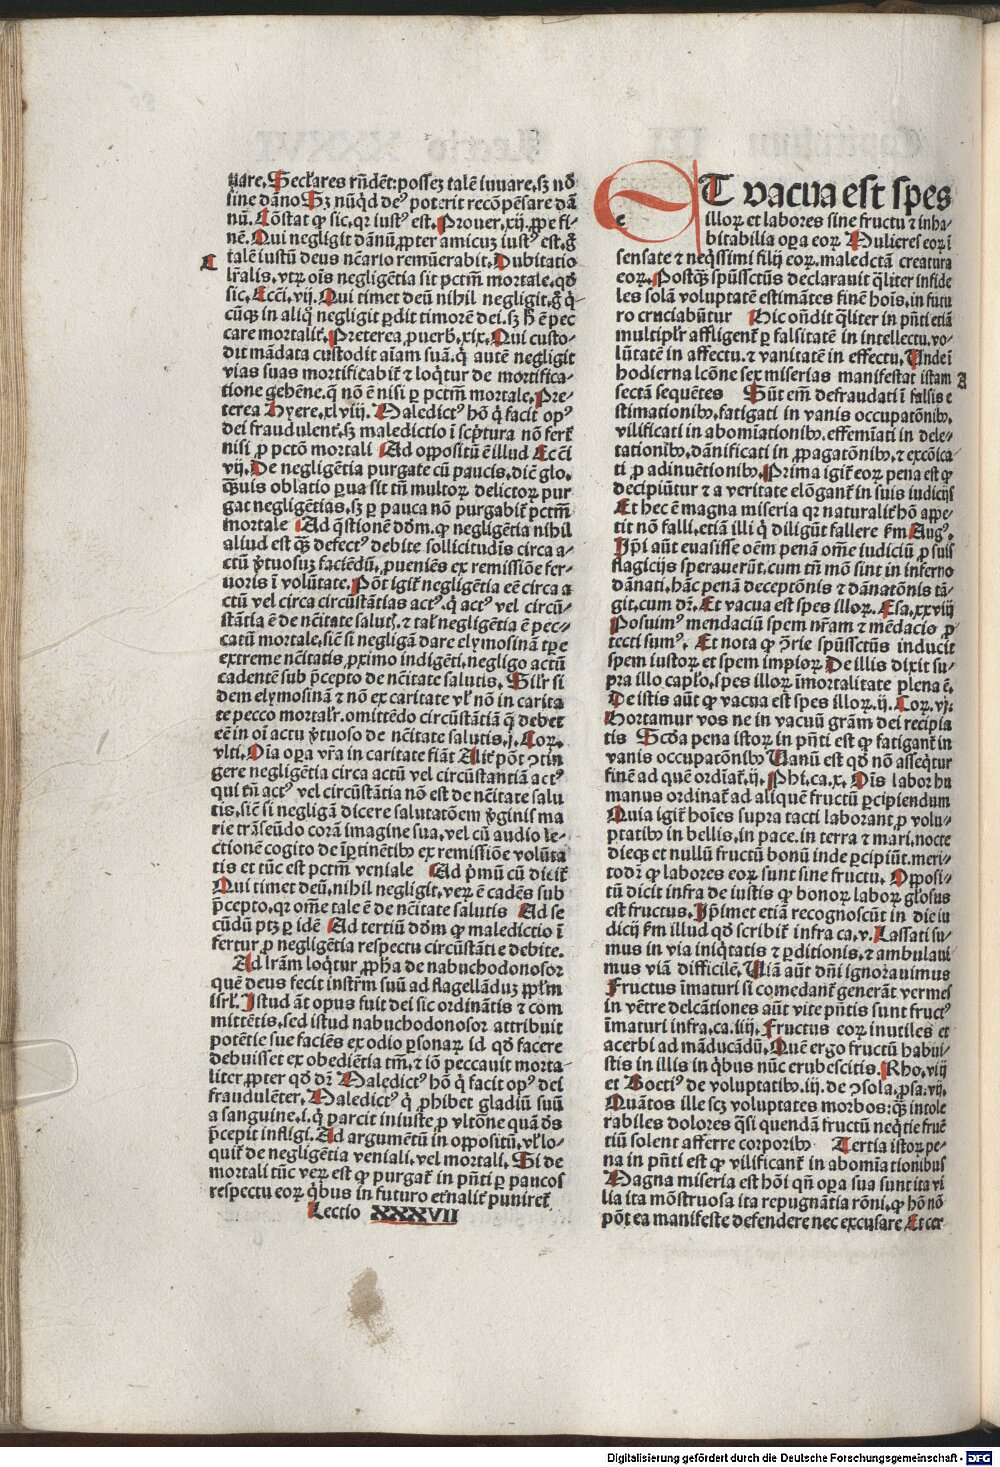 uare. Seclares rn̄dēt: possez talē iuuare, sz nō
sine dāno Sz nūq̄d deꝰ poterit recōpēsare dā
nū. Cōstat ꝙ sic, qr iustꝰ est. Prouer. xij. ꝓpe fi-
nē. Qui negligit dānū ꝓpter amicuz iustꝰ est. g̊
talē iustū deus nc̄ario remūerabit. Dubitatio
lr̄alis, vtꝝ oīs negligētia sit pctm̄ mortale, qd̄
sic. Ecc̄i. vij. Qui timet deū nihil negligit. g̊ q̇-
cūqꝫ in aliq̊ negligit ꝑdit timorē dei. sz h̄ ē pec
care mortalit̄. Preterea ꝓuerb. xix. Qui custo-
dit mādata custodit aīam suā. q̇ autē negligit
vias suas mortificabit̄ ⁊ loq̄tur de mortifica-
tione gehēne. q̄ nō ē nisi ꝑ pctm̄ mortale. Pre-
terea Hyere. xlviij. Maledictꝰ hō q̇ facit opꝰ
dei fraudulent̄. sz maledictio ī scp̄tura nō fert̄
nisi ꝓ pctō mortali Ad oppositū ē illud Ecc̄i
vij. De negligētia purgate cū paucis. dic̄ glo.
q̄uis oblatio ꝑua sit tn̄ multoꝝ delictoꝝ pur
gat negligētias. sz ꝑ pauca nō purgabit̄ pctm̄
mortale Ad q̄stionē dōm. ꝙ negligētia nihil
aliud est q̄ȝ defectꝰ debite sollicitudīs circa a-
ctū v̄tuosuz faciēdū. ꝓueniēs ex remissiōe fer-
uoris ī volūtate. Pōt igit̄ negligētia eē circa a
ctū vel circa circūstātias actꝰ. q̇ actꝰ vel circū-
stātia ē de nc̄itate saluṫ. ⁊ tal̄ negligētia ē pec-
catū mortale, sic̄ si negligā dare elymosinā tp̄e
extreme nc̄itatis ꝓximo indigēti. negligo actū
cadentē sub p̄cepto de nc̄itate salutis. Sil̄r si
dem elymosinā ⁊ nō ex caritate vl̄ nō in carita
te pecco mortal̄r. omittēdo circūstātiā q̄ debet
eē in oī actu v̄tuoso de nc̄itate salutis. j. Cor.
vlti. Oīa oꝑa vr̄a in caritate fiāt Alit̄ pōt ꝯtin
gere negligētia circa actū vel circūstantiā actꝰ
qui tn̄ actꝰ vel circūstātia nō est de nc̄itate salu
tis, sic̄ si negligā dicere salutatōem v̄ginis ma
rie trāseūdo corā imagine sua. vel cū audio le-
ctionē cogito de īp̄tinētibꝫ ex remissiōe volūta
tis et tūc est pctm̄ veniale Ad p̄mū cū dicit̄
Qui timet deū, nihil negligit, veꝝ ē cadēs sub
p̄cepto, qr om̄e tale ē de nc̄itate salutis Ad se
cūdū ptꝫ ꝑ idē Ad tertiū dōm ꝙ maledictio ī
fertur ꝓ negligētia respectu circūstātie debite.
Ad lr̄am loq̄tur ꝓpħa de nabuchodonosor
quē deus fecit instr̄m suū ad flagellāduz ppl̄m
isrl̄. Istud āt opus fuit dei sic ordinātis ⁊ com
mittētis, sed istud nabuchodonosor attribuit
potētie sue faciēs ex odio ꝑsonaꝝ id qd̄ facere
debuisset ex obediētia tm̄. ⁊ iō peccauit morta-
liter ꝓpter qd̄ dꝛ̄ Maledictꝰ hō q̇ facit opꝰ dei
fraudulēter. Maledictꝰ q̇ ꝓhibet gladiū suū
a sanguine. i. q̇ parcit iniuste ꝓ vltōne quā de̅s
p̄cepit infligi. Ad argumētū in oppositū, vl̄ lo-
quit̄ de negligētia veniali, vel mortali. Si de
mortali tūc veꝝ est ꝙ purgat̄ in pn̄ti ꝑ paucos
respectu eoꝝ q̇bus in futuro etnalit̄ puniret̄.
Lectio XXXVII
ET vacua est spes
e
illoꝝ et labores sine fructu ⁊ inha-
bitabilia oꝑa eoꝝ Mulieres eoꝝ ī
sensate ⁊ neq̄ssimi filij eoꝝ. maledctā creatura
eoꝝ. Postq̄ȝ spūssctūs declarauit q̄liter infide
les solā voluptatē estimātes finē hoīs, in futu
ro cruciabūtur Hic oñdit q̄liter in pn̄ti etiā
multipl̄r affligent̄ ꝑ falsitatē in intellectu. vo-
lūtatē in affectu. ⁊ vanitatē in effectu. Unde ī
hodierna lcōne sex miserias manifestat istam A
sectā sequētes Sūt em̄ defraudati ī falsis e
stimationibꝫ. fatigati in vanis occupatōnibꝫ.
vilificati in abomīationibꝫ. effemīati in dele-
tationibꝫ. dānificati in ꝓpagatōnibꝫ. ⁊ excōica
ti ꝓ adinuētionibꝫ. Prima igit̄ eoꝝ pena est ꝙ
decipiūtur ⁊ a veritate elōgant̄ in suis iudicijs
Et hec ē magna miseria qꝛ naturalit̄ hō appe-
tit nō falli. etiā illi q̇ diligūt fallere fm̄ Augꝰ.
Ip̄i aūt euasisse oēm penā om̄e iudiciū ꝓ suis
flagicijs sperauerūt. cum tn̄ mō sint in inferno
dānati. hāc penā deceptōnis ⁊ dānatōnis tā-
git. cum dꝛ̄. Et vacua est spes illoꝝ. Esa. xxviij
Posuimꝰ mendaciū spem nr̄am ⁊ mēdacio ꝓ
tecti sumꝰ. Et nota ꝙ ꝯ̄rie spūssctūs inducit
spem iustoꝝ et spem impioꝝ De illis dixit su-
pra illo caplo. spes illoꝝ īmortalitate plena ē.
De istis aūt ꝙ vacua est spes illoꝝ. ij. Cor. vj.
Hortamur vos ne in vacuū grām dei recipia
tis Scd̄a pena istoꝝ in pn̄ti est ꝙ fatigant̄ in
vanis occupatōnibꝫ Vanū est qd̄ nō asseq̄tur
finē ad quē ordīat̄. ij. Phi. ca. x. Oīs labor hu
manus ordinat̄ ad aliquē fructū ꝑcipiendum
Quia igit̄ hoīes supra tacti laborant̄ ꝓ volu-
ptatibꝫ in bellis. in pace. in terra ⁊ mari. nocte
dieqꝫ et nullū fructū bonū inde ꝑcipiūt. meri-
to dꝛ̄ ꝙ labores eoꝝ sunt sine fructu. Opposi-
tū dicit infra de iustis ꝙ bonoꝝ laboꝝ gl̄osus
est fructus. Ip̄imet etiā recognoscūt in die iu
dicij fm̄ illud qd̄ scribit̄ infra ca. v. Lassati su-
mus in via iniq̄tatis ⁊ ꝑditionis. ⁊ ambulaui
mus viā difficilē. Viā aūt dn̄i ignorauimus
Fructus īmaturi si comedant̄ generāt vermes
in vētre delc̄ationes aūt vite pn̄tis sunt fructꝰ
īmaturi infra. ca. iiij. Fructus eoꝝ inutiles et
acerbi ad māducādū. Quē ergo fructū habui-
stis in illis in q̇bus nūc erubescitis. Rho. viij
et Boetiꝰ de voluptatibꝫ. iij. de ꝯsola. ꝓsa. vij.
Quātos ille scꝫ voluptates morbos: q̄ȝ intole
rabiles dolores q̄si quendā fructū neq̄tie frue
tiū solent afferre corporibꝫ Tertia istoꝝ pe-
na in pn̄ti est ꝙ vilificant̄ in abomīationibus
Magna miseria est hōi qn̄ oꝑa sua sunt ita vi
lia ita mōstruosa ita repugnātia rōni. ꝙ hō nō
pōt ea manifeste defendere nec excusare Et cer
Digitalisierung gefördert durch die Deutsche Forschungsgemeinschaft - DFG